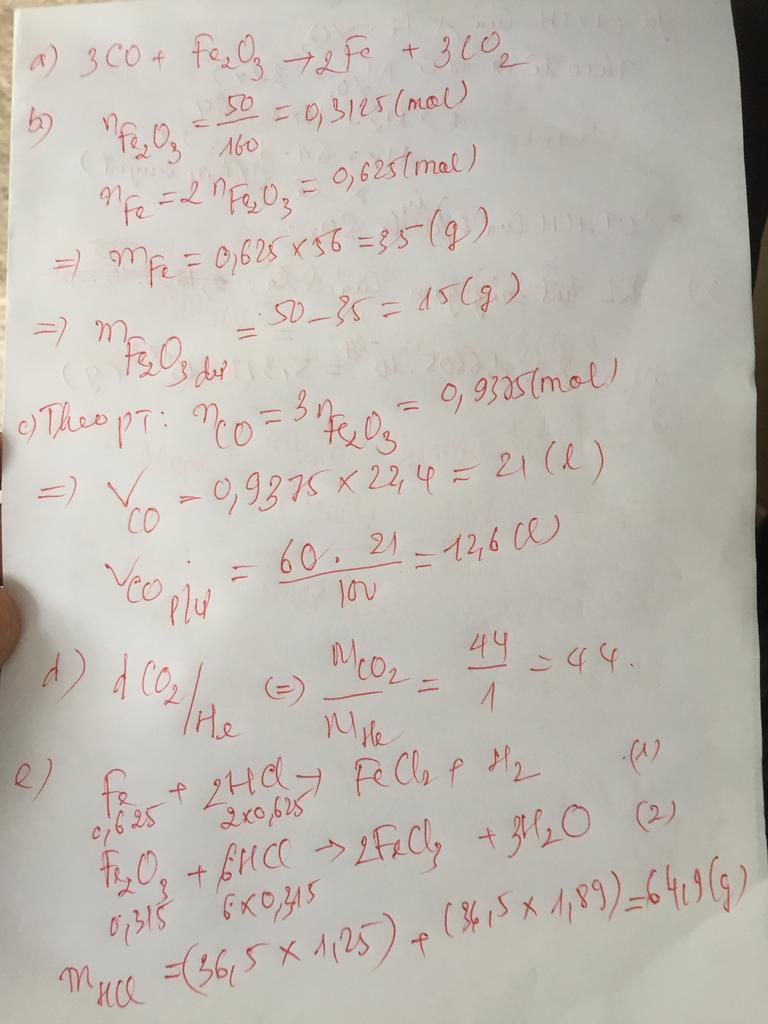 a) 3CO + Fe₂O₃ → 2Fe + 3CO₂
b) nFe₂O₃ = 50/160 = 0,3125 (mol)
nFe = 2 nFe₂O₃ = 0,625 (mol)
=) mFe = 0,625 × 56 = 35 (g)
=) mFe₂O₃ dư = 50 - 35 = 15 (g)
c) Theo PT: nCO = 3 nFe₂O₃ = 0,9375 (mol)
=) VCO = 0,9375 × 22,4 = 21 (l)
VCO p/ư = 60 . 21/100 = 12,6 (l)
d) d CO₂/He (=) MCO₂/MHe = 44/1 = 44.
e) Fe + 2HCl → FeCl₂ + H₂ (1)
0,625 2x0,625
Fe₂O₃ + 6HCl → 2FeCl₃ + 3H₂O (2)
0,315 6×0,315
mHCl = (36,5 × 1,25) + (36,5 × 1,89) = 64,9 (g)